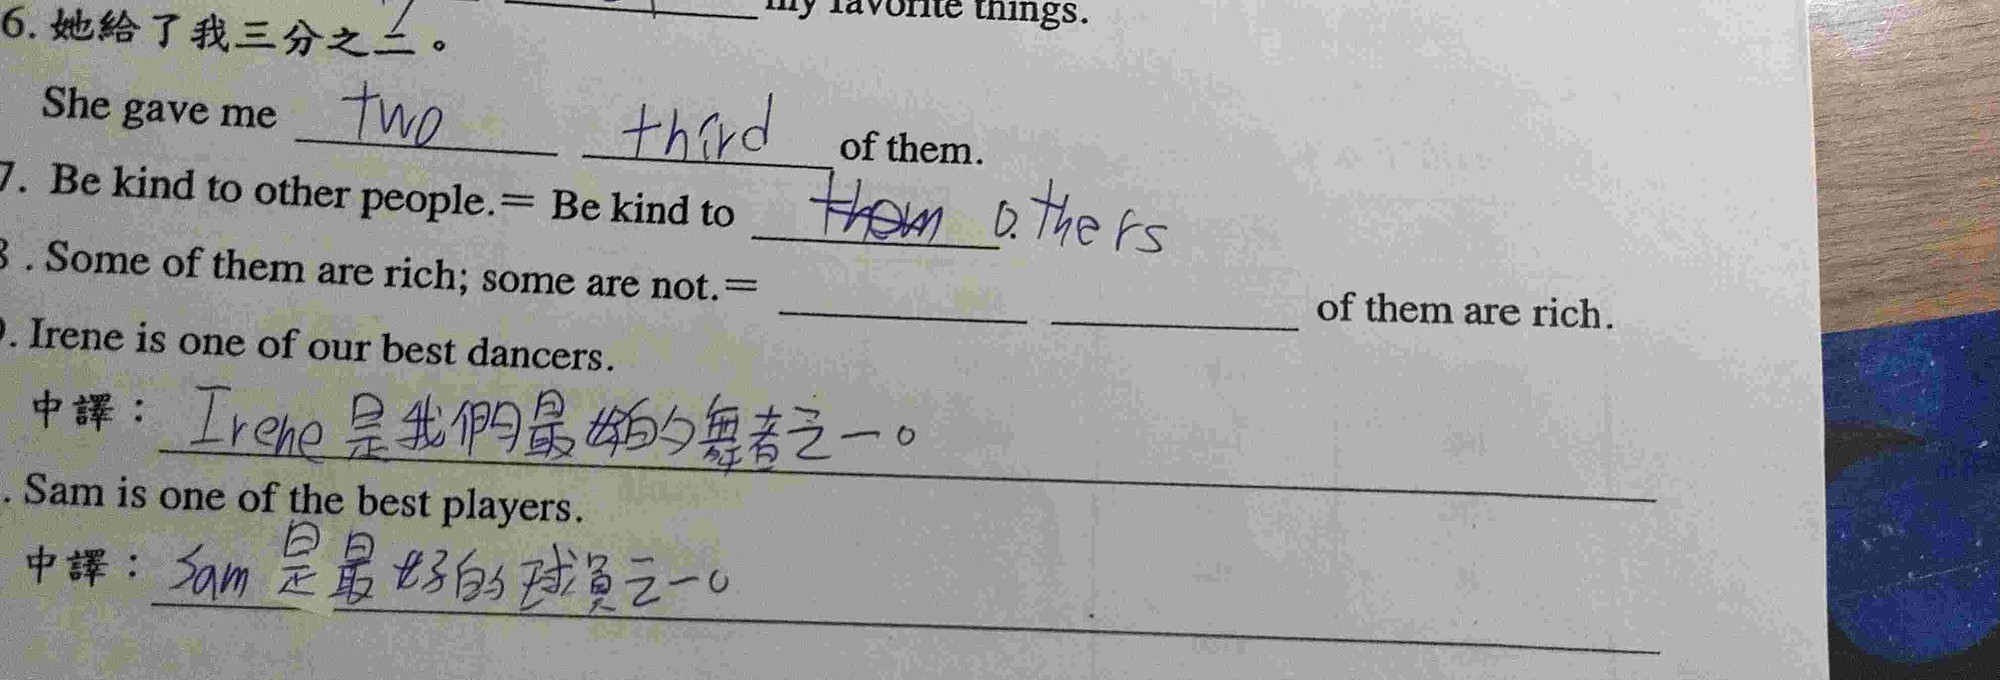 my favorite things.
6. 她給了我三分之二。
She gave me two third of them.
7. Be kind to other people.= Be kind to others
8. Some of them are rich; some are not.= of them are rich.
. Irene is one of our best dancers.
中譯： Irene是我們最好的舞者之一。
. Sam is one of the best players.
中譯： Sam是最好的球員之一。